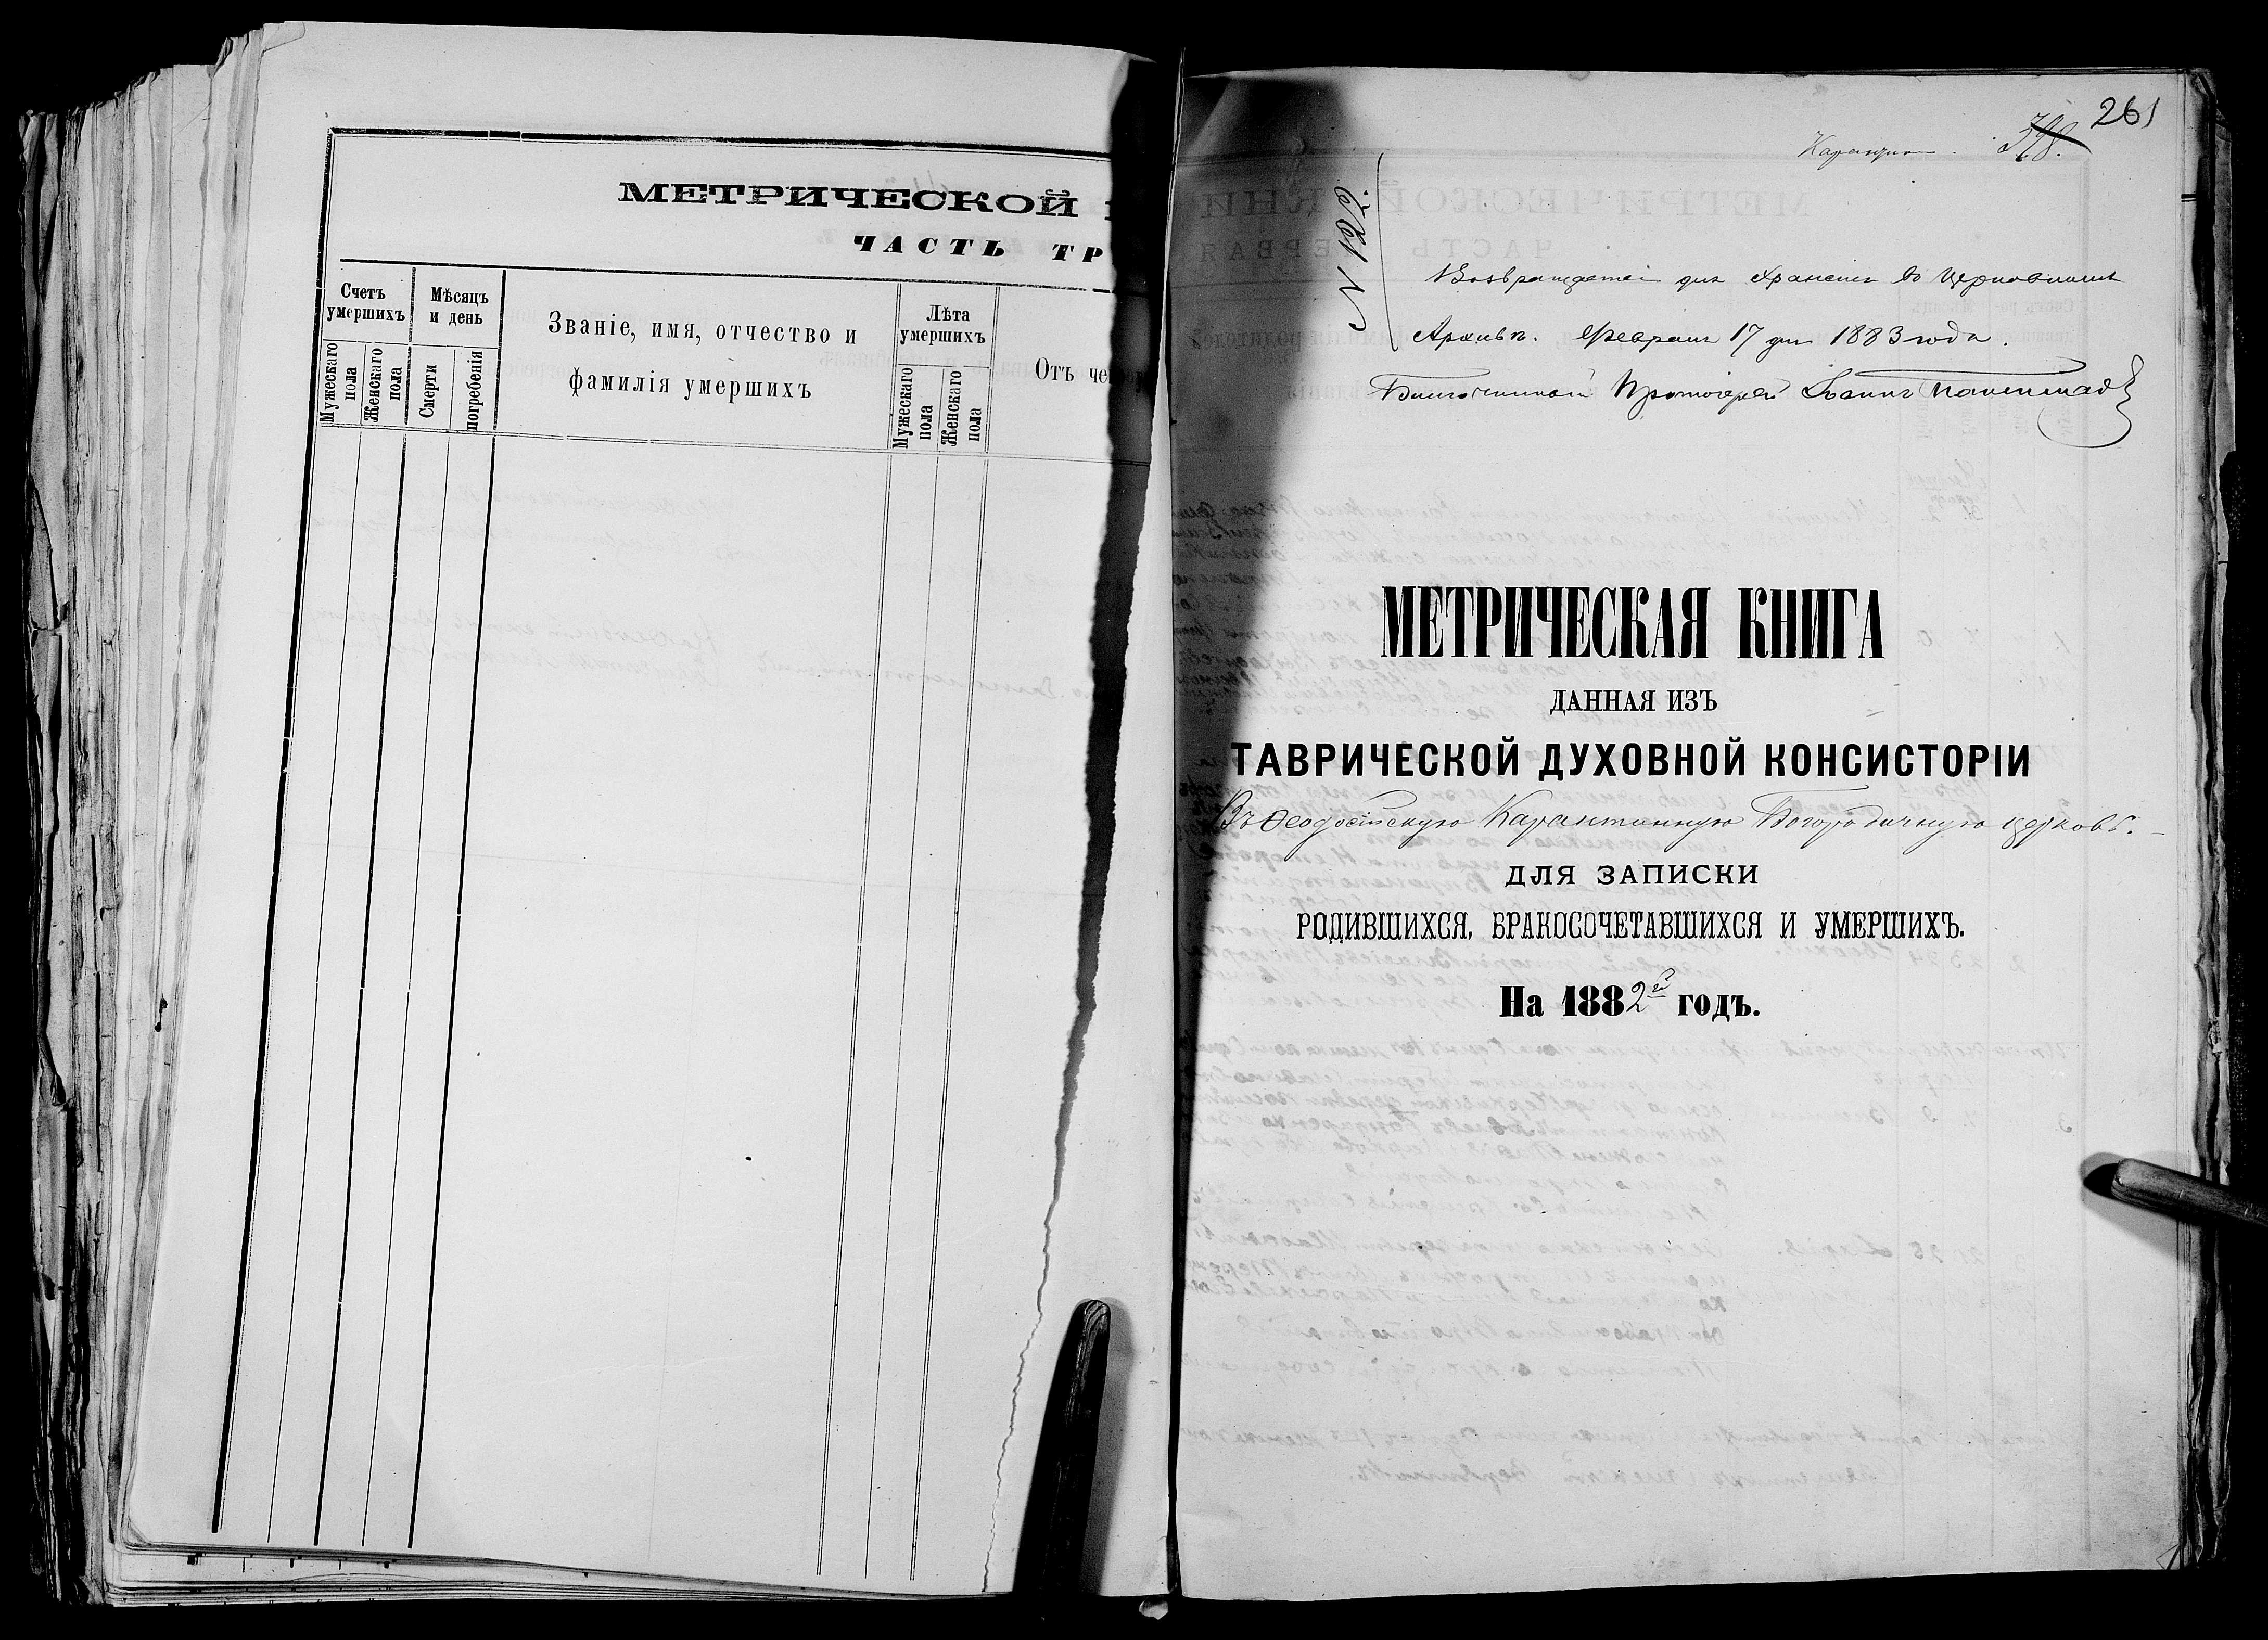 МЕТРИЧЕСКОЙ
ЧАСТЬ ТР
Счетъ умершихъ
Мѣсяцъ и день
Званіе, имя, отчество и
фамилія умершихъ
Лѣта умершихъ
Отъ че
Мужескаго пола
Женскаго пола
Смерти
погребенія
Мужескаго пола
Женскаго пола
261
398.
Возвращается для храненія въ Церковномъ
Архивѣ. Февраля 17 дня 1883 года.
Благочинный Протоіерей Іоаннъ
МЕТРИЧЕСКАЯ КНИГА
ДАННАЯ ИЗЪ
ТАВРИЧЕСКОЙ ДУХОВНОЙ КОНСИСТОРІИ
Въ Ѳеодосійскую Карантинную Богородичную церковь.
ДЛЯ ЗАПИСКИ
РОДИВШИХСЯ, БРАКОСОЧЕТАВШИХСЯ И УМЕРШИХЪ.
На 1882й годъ.